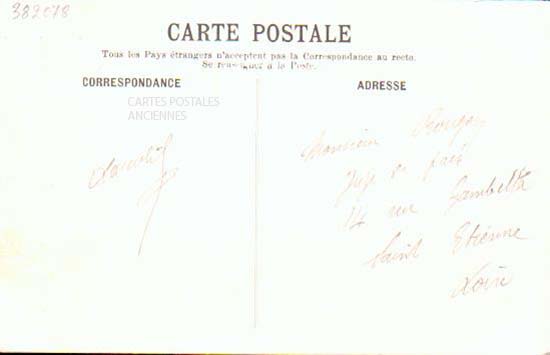 382078
CARTE POSTALE
Tous les Pays étrangers n'acceptent pas la Correspondance au recto.
Se renseigner à la Poste.
CORRESPONDANCE
CARTES POSTALES
ANCIENNES
ADRESSE
Monsieur Rougon
Juge de paix
14 rue Gambetta
Saint Etienne
Loire